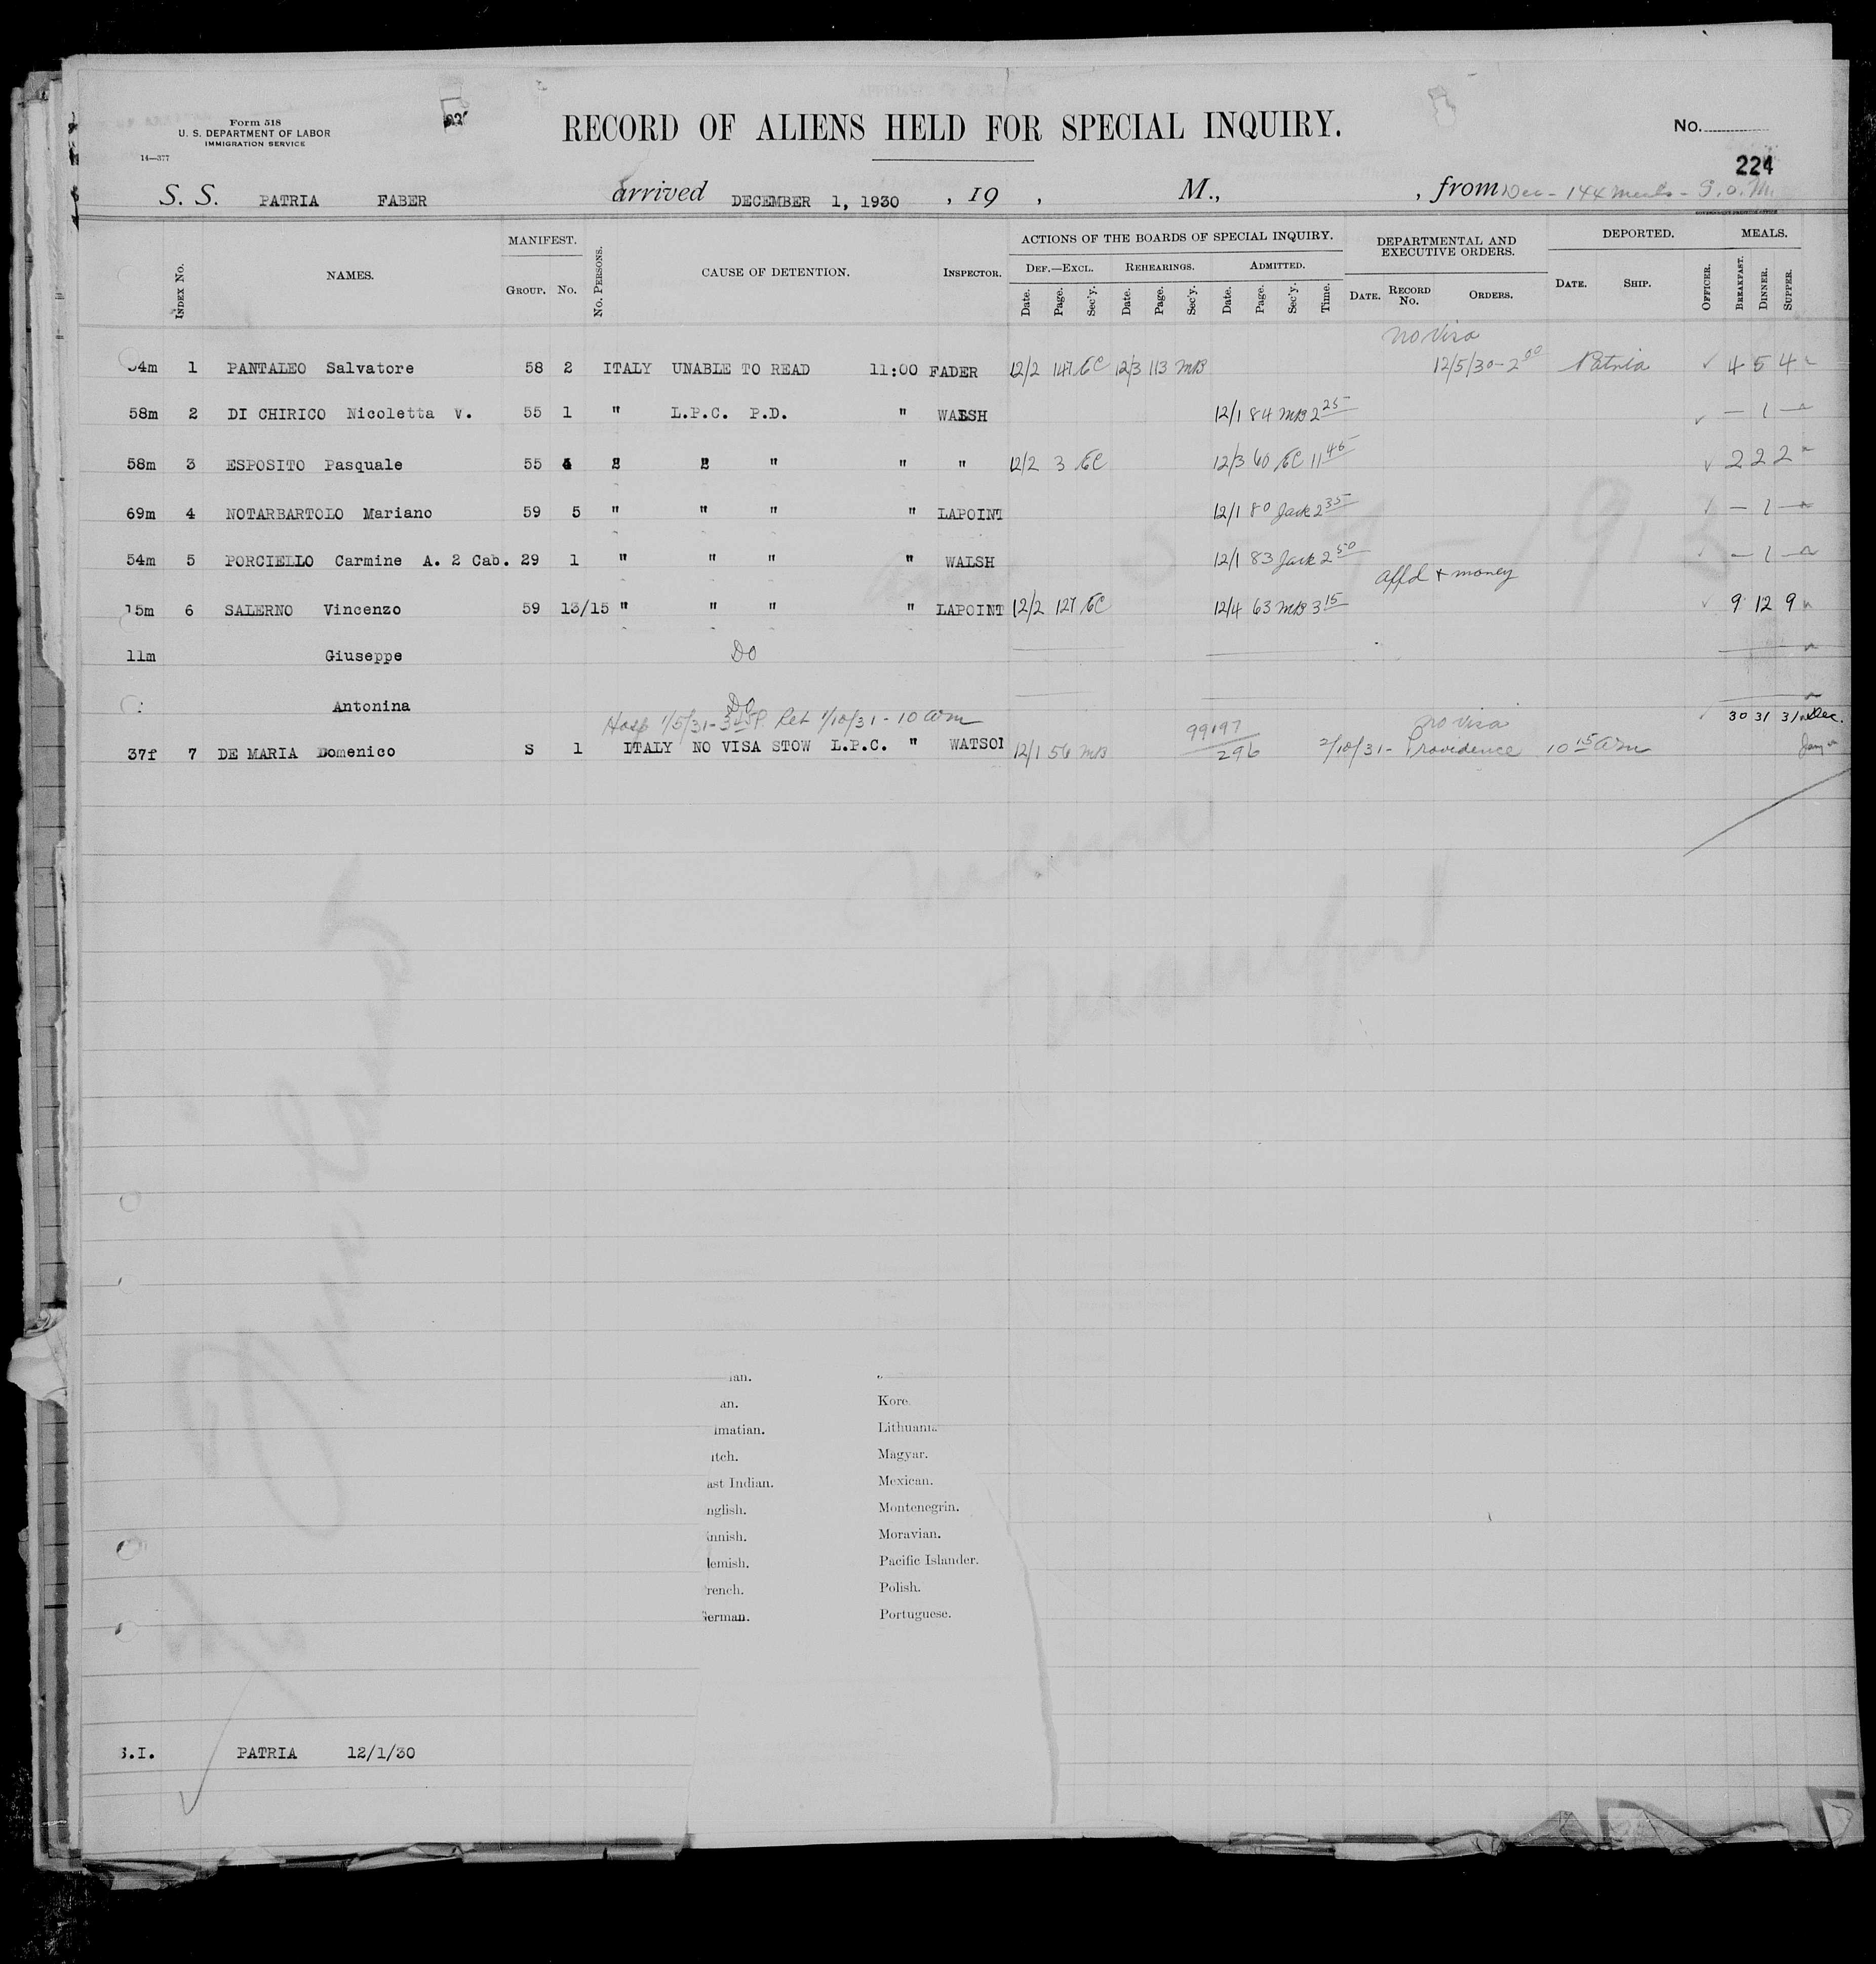 Form 518
U. S. DEPARTMENT OF LABOR
IMMIGRATION SERVICE
14—377
RECORD OF ALIENS HELD FOR SPECIAL INQUIRY.
No.
224
S. S. PATRIA FABER arrived DECEMBER 1, 1930 , 19 , M., , from Dec - 144 meals - S. o. M.
INDEX No. NAMES. MANIFEST. GROUP. No. No. PERSONS. CAUSE OF DETENTION. INSPECTOR. ACTIONS OF THE BOARDS OF SPECIAL INQUIRY. DEPARTMENTAL AND EXECUTIVE ORDERS. DEPORTED. MEALS.
DEF.—EXCL. REHEARINGS. ADMITTED.
Date. Page. Sec'y. Date. Page. Sec'y. Date. Page. Sec'y. Time. DATE. RECORD No. ORDERS. DATE. SHIP. OFFICER. BREAKFAST. DINNER. SUPPER.
no visa
54m 1 PANTALEO Salvatore 58 2 ITALY UNABLE TO READ 11:00 FADER 12/2 147 EC 12/3 113 MB 12/5/30 - 2 00 Patria ✓ 4 5 4
58m 2 DI CHIRICO Nicoletta V. 55 1 " L.P.C. P.D. " WALSH 12/1 84 MB 2 25 ✓ — 1 —
58m 3 ESPOSITO Pasquale 55 4 " " " " " 12/2 3 EC 12/3 60 EC 11 45 ✓ 2 2 2
69m 4 NOTARBARTOLO Mariano 59 5 " " " " LAPOINT 12/1 80 Jack 2 35 ✓ — 1 —
54m 5 PORCIELLO Carmine A. 2 Cab. 29 1 " " " " WALSH 12/1 83 Jack 2 50 ✓ — 1 —
affd + money
15m 6 SALERNO Vincenzo 59 13/15 " " " " LAPOINT 12/2 127 EC 12/4 63 MB 3 15 ✓ 9 12 9
11m Giuseppe Do
Antonina Do
Hosp 1/5/31 - 3 45 P. Ret 1/10/31 - 10 am 99197 no visa ✓ 30 31 31 Dec.
37f 7 DE MARIA Domenico S 1 ITALY NO VISA STOW L.P.C. " WATSON 12/1 56 MB 296 2/10/31 - Providence 10 15 am Jany
ian.
an. Kore
lmatian. Lithuani
utch. Magyar.
ast Indian. Mexican.
nglish. Montenegrin.
innish. Moravian.
lemish. Pacific Islander.
rench. Polish.
German. Portuguese.
S.I. PATRIA 12/1/30